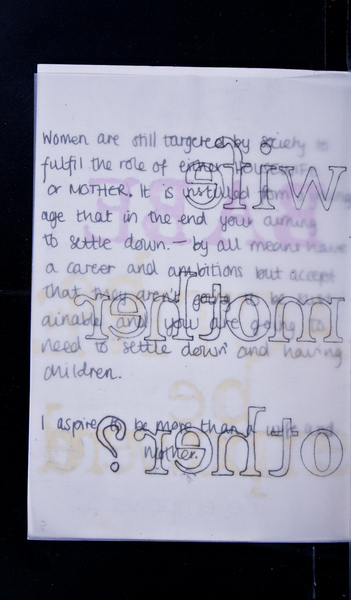 Women are still targeted by society to
fulfil the role of either HOUSEWIFE
or MOTHER. It is instilled from young
age that in the end your aiming
to settle down. — by all means have
a career and ambitions but accept
that they aren't going to be sust
ainable and you are going to
need to settle down and having
children.
I aspire to be more than a wife and
mother.
wife
mother
other?